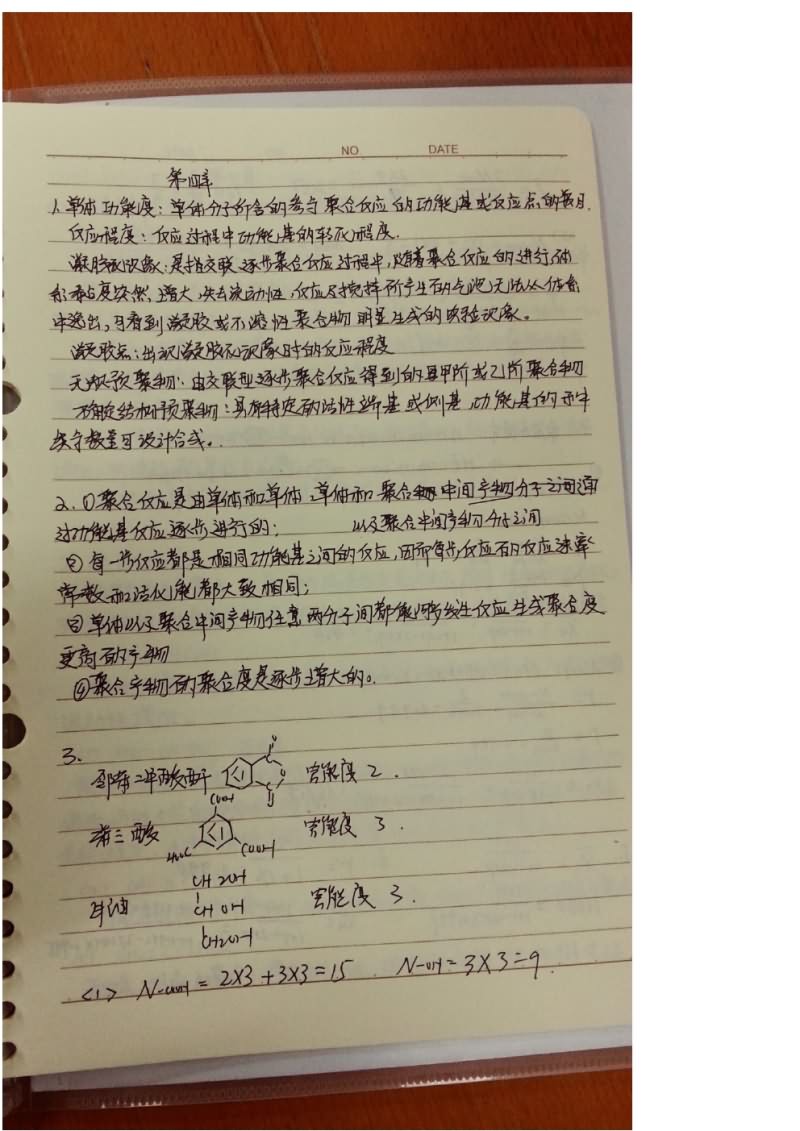 NO. DATE
第四章
1. 单体功能度：单体分子所含的参与聚合反应的功能基或反应点的数目.
反应程度：反应过程中功能基的转化程度.
凝胶化现象：是指交联逐步聚合反应过程中，随着聚合反应的进行体
系黏度突然增大，失去流动性，反应及搅拌所产生的气泡无法从体系
中逸出，可看到凝胶或不溶性聚合物明显生成的实验现象。
凝胶点：出现凝胶化现象时的反应程度
无规预聚物：由交联型逐步聚合反应得到的是甲阶或乙阶聚合物
确定结构预聚物：具有特定的活性端基或侧基，功能基的种
类与数量可设计合成。
2. ①聚合反应是由单体和单体，单体和聚合中间产物分子之间通
过功能基反应逐步进行的； 以及聚合中间产物分子之间
② 每一步反应都是相同功能基之间的反应，因而每步反应的反应速率
常数和活化能都大致相同；
③ 单体以及聚合中间产物任意两分子间都能够发生反应生成聚合度
更高的产物
④聚合产物的聚合度是逐步增大的。
3.
邻苯二甲酸酐 O O O 官能度 2.
COOH
苯三酸 HOOC COOH 官能度 3.
CH2OH
甘油 CHOH 官能度 3.
CH2OH
<1> N-COOH = 2×3+3×3=15 N-OH = 3×3=9.